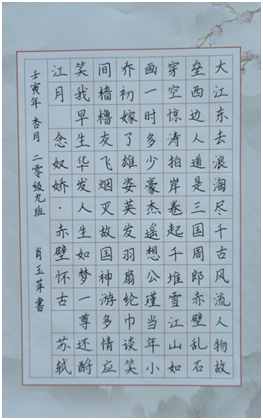 大江东去浪淘尽千古风流人物故
垒西边人道是三国周郎赤壁乱石
穿空惊涛拍岸卷起千堆雪江山如
画一时多少豪杰遥想公瑾当年小
乔初嫁了雄姿英发羽扇纶巾谈笑
间樯橹灰飞烟灭故国神游多情应
笑我早生华发人生如梦一尊还酹
江月 念奴娇·赤壁怀古 苏轼
壬寅年 杏月 二零级九班 肖玉書